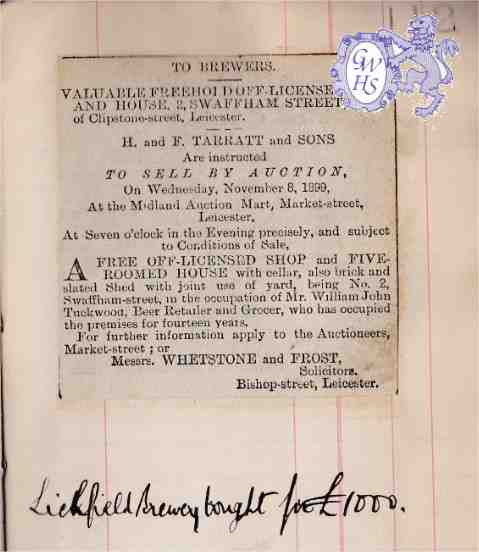 TO BREWERS.
VALUABLE FREEHOLD OFF-LICENSE
AND HOUSE, 2, SWAFFHAM STREET
of Clipstone-street, Leicester.
H. and F. TARRATT and SONS
Are instructed
TO SELL BY AUCTION,
On Wednesday, November 8, 1899,
At the Midland Auction Mart, Market-street,
Leicester,
At Seven o'clock in the Evening precisely, and subject
to Conditions of Sale,
A FREE OFF-LICENSED SHOP and FIVE-
ROOMED HOUSE with cellar, also brick and
slated Shed with joint use of yard, being No. 2,
Swaffham-street, in the occupation of Mr. William John
Tuckwood, Beer Retailer and Grocer, who has occupied
the premises for fourteen years.
For further information apply to the Auctioneers,
Market-street; or
Messrs. WHETSTONE and FROST,
Solicitors.
Bishop-street, Leicester.
Lichfield Brewery bought for £1000.
GWHS